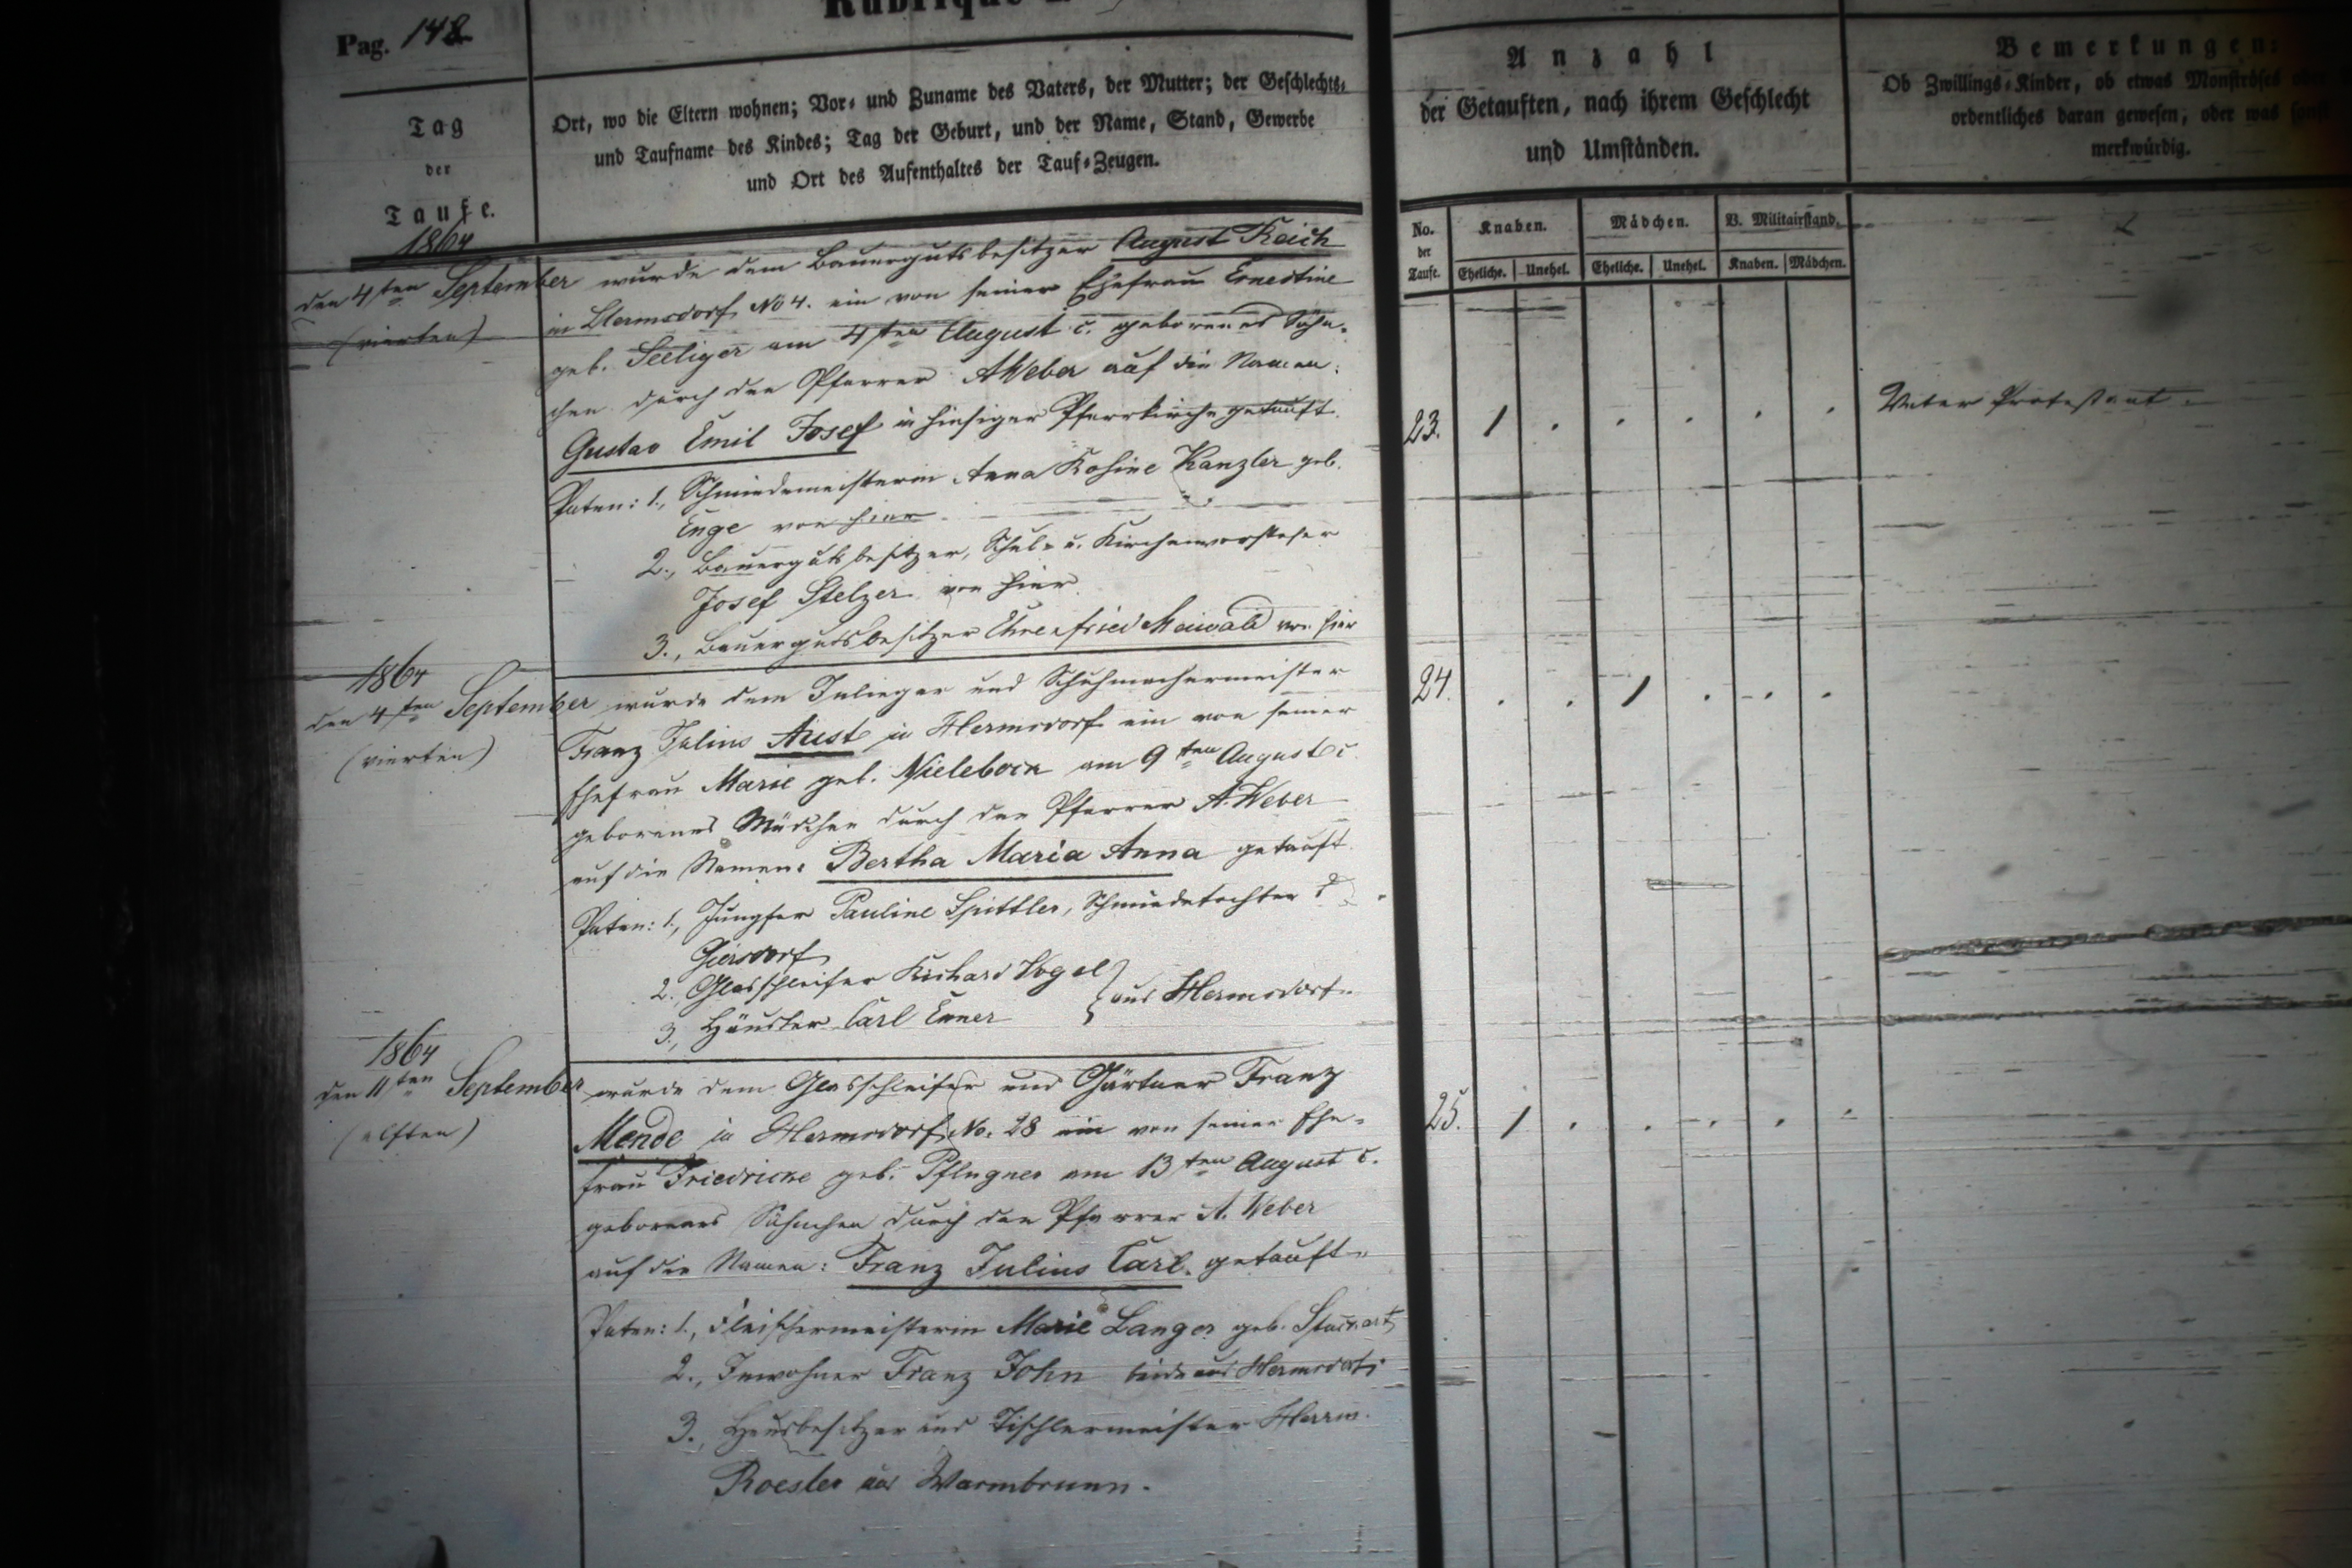 Pag. 148
Tag
der
Taufe.
Ort, wo die Eltern wohnen; Vor- und Zuname des Vaters, der Mutter; der Geschlechts-
und Taufname des Kindes; Tag der Geburt, und der Name, Stand, Gewerbe
und Ort des Aufenthaltes der Tauf-Zeugen.
Anzahl
der Getauften, nach ihrem Geschlecht
und Umständen.
Bemerkungen:
Ob Zwillings-Kinder, ob etwas Monströses
ordentliches daran gewesen, oder was
merkwürdig.
No. der Taufe.
Knaben.
Mädchen.
V. Militairstand.
Eheliche. Unehel. Eheliche. Unehel. Knaben. Mädchen.
1864
den 4ten September wurde dem Bauergutsbesitzer August Reich
(vierten)
in Hermsdorf No 4. ein von seiner Ehefrau Ernestine
geb. Seeliger am 4ten August c. geborenes Söhn-
chen durch den Pfarrer A Weber auf die Namen:
Gustav Emil Josef in hiesiger Pfarrkirche getauft.
23. 1 . . . . . Vater Protestant.
Paten: 1., Schmiedemeisterin Anna Rosine Kanzler geb.
Enge von hier
2., Bauergutsbesitzer, Schul- u. Kirchenvorsteher
Josef Stelzer von hier.
3., Bauergutsbesitzer Ehrenfried Maiwald von hier
1864
den 4ten September wurde dem Inlieger und Schuhmachermeister
(vierten)
24. . . 1 . . .
Franz Julius Aust in Hermsdorf ein von seiner
Ehefrau Marie geb. Nielebock am 9ten August c.
geborenes Mädchen durch den Pfarrer A. Weber
auf die Namen: Bertha Maria Anna getauft.
Paten: 1., Jungfer Pauline Spittler, Schmiedetochter
Giersdorf
2., Glasschleifer Richard Vogel
3., Häusler Carl Exner
aus Hermsdorf.
1864
den 11ten September wurde dem Glasschleifer und Gärtner Franz
(elften)
Mende in Hermsdorf No. 28 ein von seiner Ehe-
25. 1 . . . . .
frau Friedricke geb. Pflugner am 13ten August c.
geborenes Söhnchen durch den Pfarrer A. Weber
auf die Namen: Franz Julius Carl. getauft.
Paten: 1., Fleischermeisterin Marie Langer geb.
2., Inwohner Franz John beide aus Hermsdorf.
3., Hausbesitzer und Tischlermeister Herrm.
Roesler aus Warmbrunn.